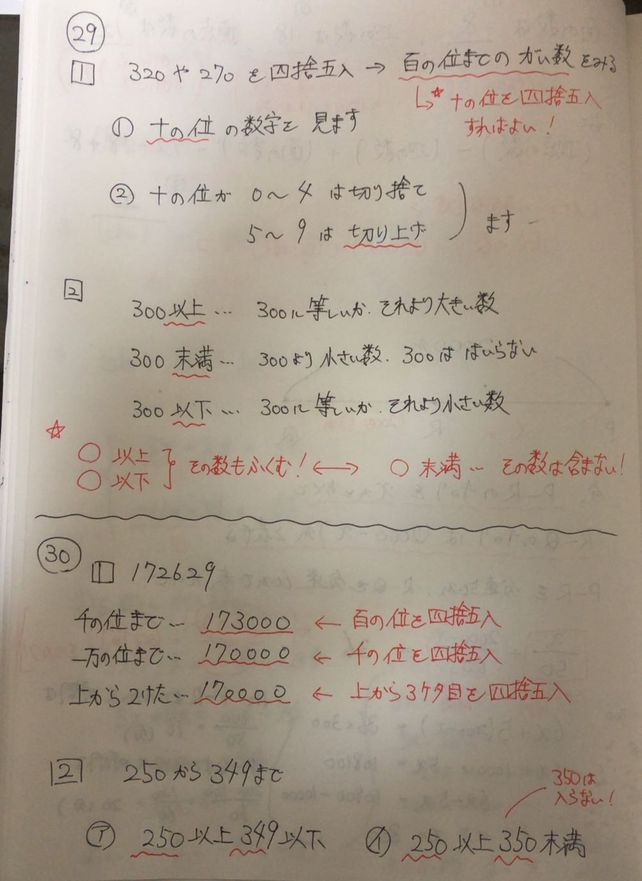 29
1 320や270を四捨五入→百の位までのがい数をみる
☆十の位を四捨五入
すればよい!
① 十の位の数字を見ます
② 十の位が 0〜4は切り捨て
5〜9は切り上げ
ます
2
300以上… 300に等しいか.それより大きい数
300未満… 300より小さい数.300ははいらない
300以下… 300に等しいか それより小さい数
☆
○以上
○以下
その数もふくむ!←→ ○未満… その数は含まない!
30
1 172629
千の位まで… 173000 ← 百の位を四捨五入
一万の位まで… 170000 ← 千の位を四捨五入
上から2けた… 170000 ← 上から3ケタ目を四捨五入
2 250から349まで
350は
入らない!
㋐ 250以上349以下 ㋑ 250以上350未満